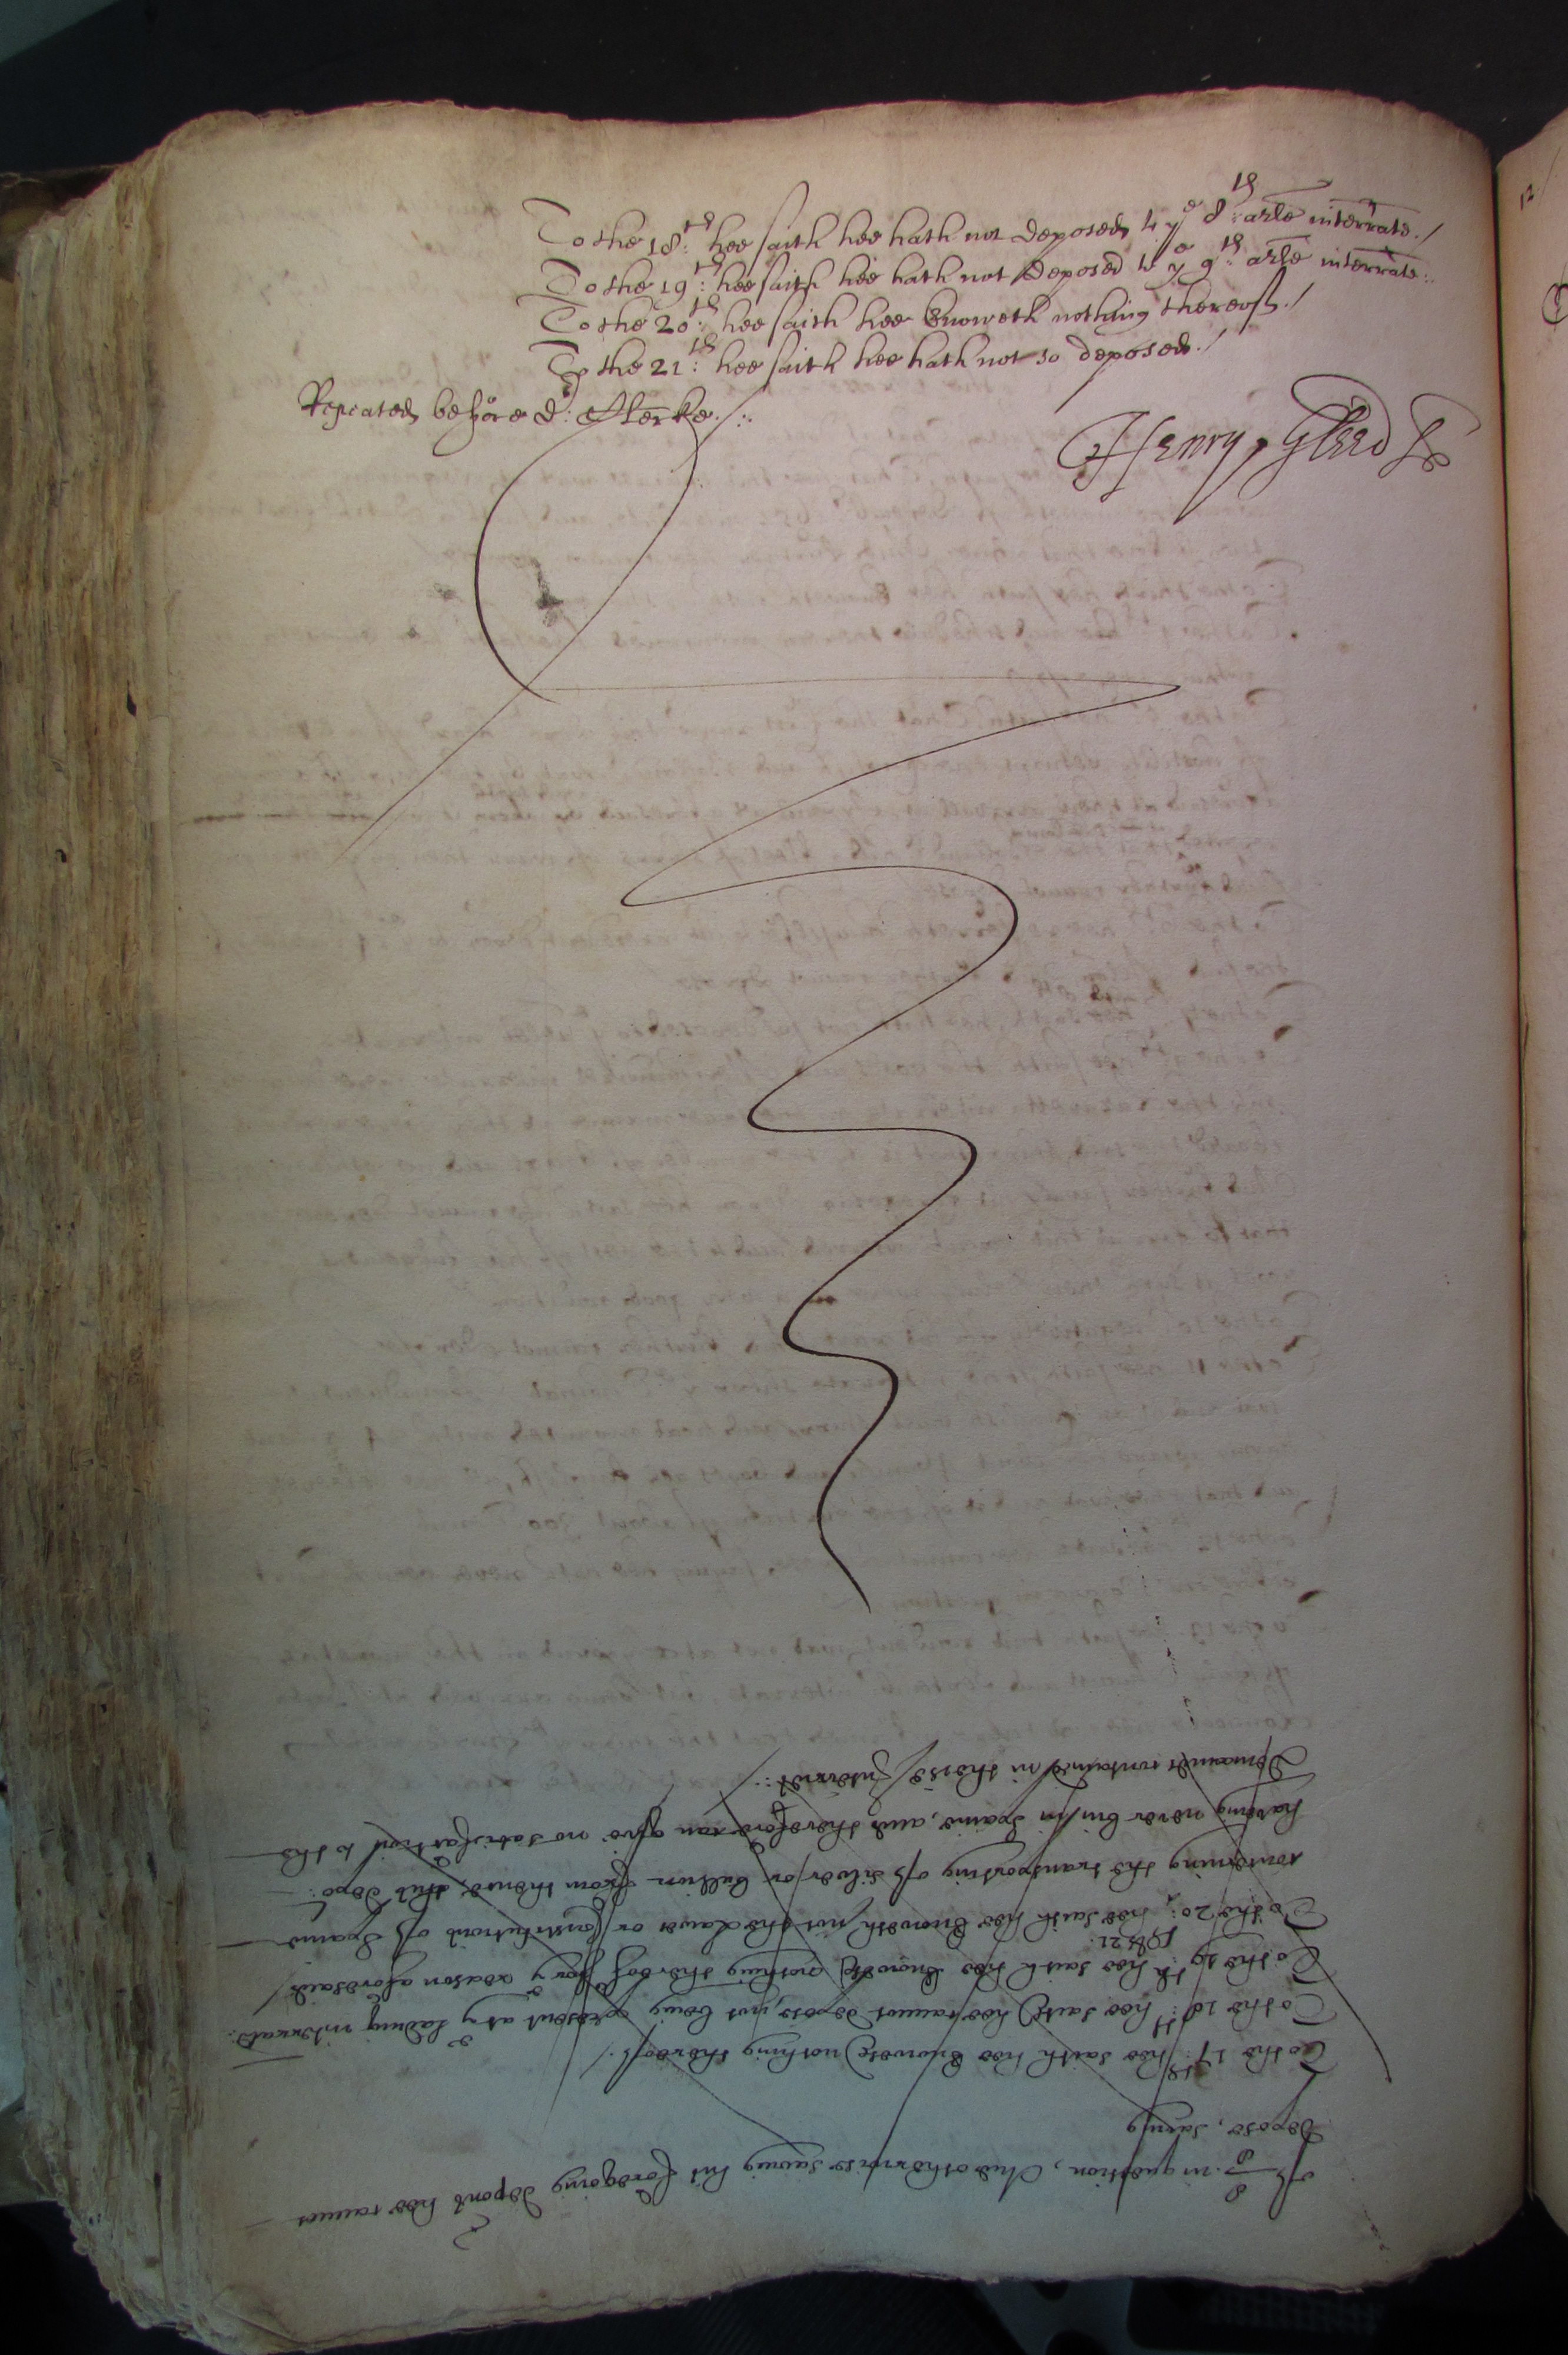 To the 18:th hee saith hee hath not deposed to ye 8:th arle interrate./
To the 19:th hee saith hee hath not deposed to ye 9:th arle interrate:
To the 20:th hee saith hee knoweth nothing thereof./
To the 21:th hee saith hee hath not so deposed./
Repeated before d: Clerke./:
Henry Gleed
of S. in question, And otherwise saving his foregoing depont hee cannot
depose, saving
To the 17:th hee saith hee knoweth nothing thereof./
To the 18:th hee saith hee cannot depose, not being present at ye lading interrate:
To the 19:th hee saith hee knoweth nothing thereof for ye reason aforesaid/
To the 20: & 21: hee saith hee knoweth not the Lawes or Constitutions of Spaine
concerning the transporting of silver or bullion from thence, this depo:
having never bin in Spaine, and therefore can give no satisfaction to the
demands contained in these Interries: